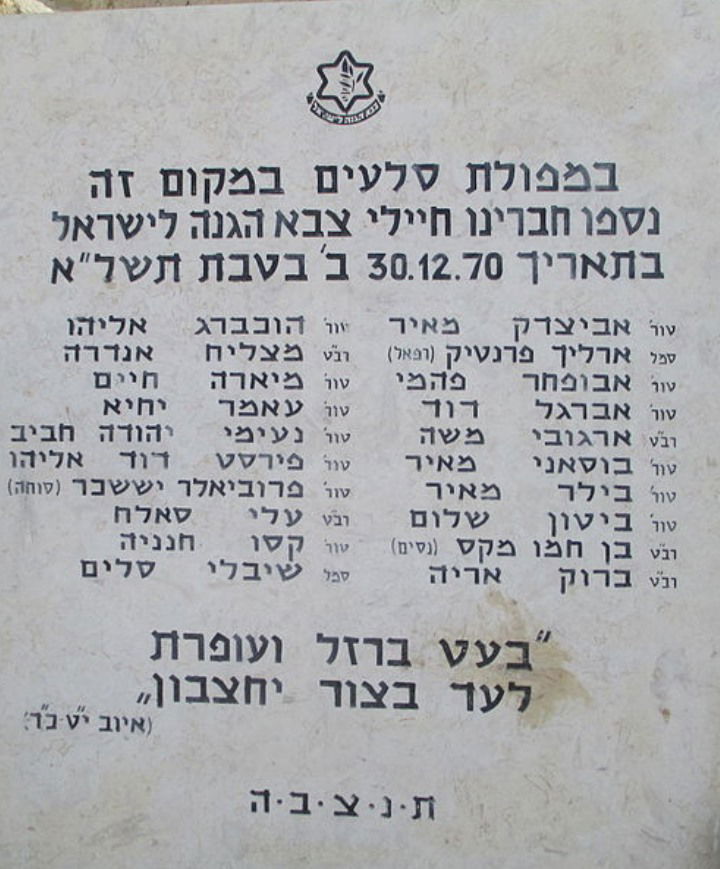 צבא הגנה לישראל
במפולת סלעים במקום זה
נספו חברינו חיילי צבא הגנה לישראל
בתאריך 30.12.70 ב' בטבת תשל"א
טור' אביצדק מאיר
סמל ארליך פרנטיק (רפאל)
טור' אבופחר פהמי
טור' אברגל דוד
רב"ט ארגובי משה
טור' בוסאני מאיר
טור' בילר מאיר
טור' ביטון שלום
רב"ט בן חמו מקס (נסים)
רב"ט ברוק אריה
טור' הוכברג אליהו
רב"ט מצליח אנדרה
טור' מיארה חיים
טור' עאמר יחיא
טור' נעימי יהודה חביב
טור' פירסט דוד אליהו
טור' פרוביאלר יששכר (סוחה)
רב"ט עלי סאלח
טור' קסו חנניה
סמל שיבלי סלים
"בעט ברזל ועופרת
לעד בצור יחצבון"
(איוב י"ט כ"ד)
ת.נ.צ.ב.ה